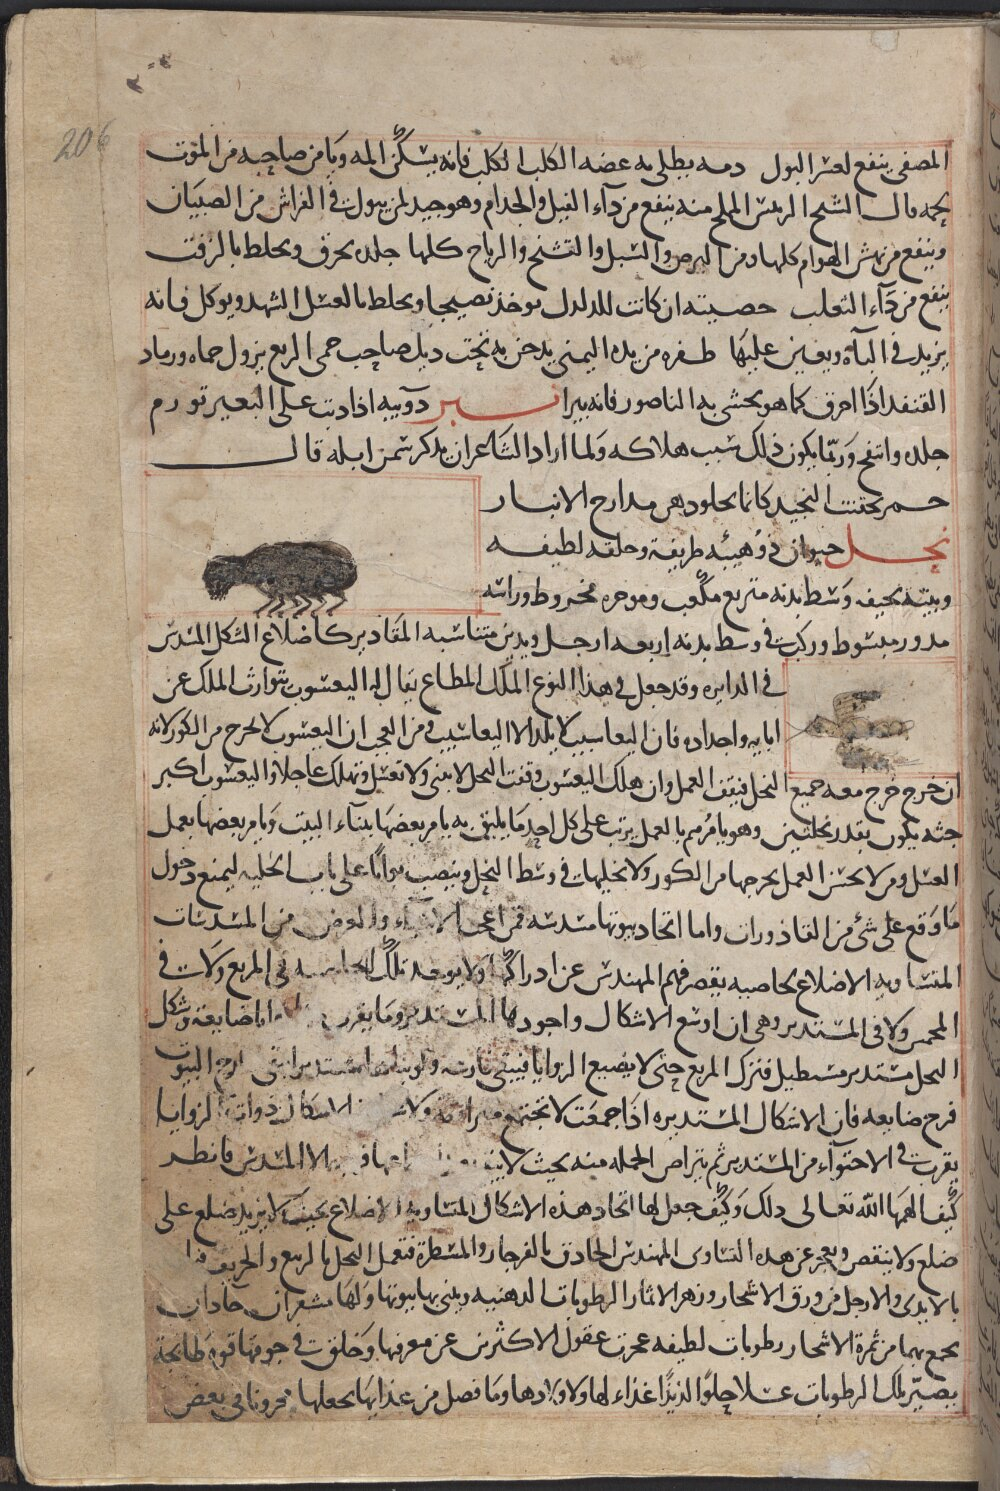 206
المصفى ينفع لعسر البول دمه يطلى به عضه الكلب الكلب فانه يسكن المه ويامن صاحبه من الموت
لحمه قال الشيخ الرئيس المملح منه ينفع من داء الفيل والجذام وهو جيد لمن يبول في الفراش من الصبيان
وينفع من نهش الهوام كلها ومن البرص والسل والتشنج والرياح كلها جلده يحرق ويخلط بالزفت
ينفع من داء الثعلب خصيته ان كانت للدلدل يوخذ نصيجا ويخلط بالعسل الشهد ويوكل فانه
يزيد في الباه ويعين عليها ظفره من يده اليمنى يدخن به تحت ذيل صاحب حمى الربع يزول حماه ورماد
القنفد اذا احرق كما هو يحشى به الناصور فانه يبرا نسبر دويبه اذا دبت على البعير تورم
جلده وانتفخ وربما يكون ذلك سبب هلاكه ولما اراد الشاعر ان يذكر سمن ابله قال
حمر النجيد كانما بجلودهن مدارج الانبار
نحل حيوان ذو هيئه ظريفة وخلقه لطيفه
وبنيه نحيفه وسط بدنه متربع مكعب وموخره مخروط وراسه
مدور مبسوط وركبت في وسط بدنه اربعه ارجل ويدين متناسبه المقادير كاضلاع الشكل المسدس
في الدايره وقد جعل في هذا النوع الملك المطاع يقال له اليعسوب يتوارث الملك عن
ابايه واجداده فان اليعاسيب لا يلد الا اليعاسيب ومن العجب ان اليعسوب لا يخرج من الكور لانه
ان خرج خرج معه جميع النحل فيقف العمل وان هلك اليعسوب وقفت النحل لا يبنى ولا تعسل وتهلك عاجلا واليعسوب اكبر
جثه يكون بقدر نحلتين وهو يامرهم بالعمل يرتب على كل احد ما يليق به يامر بعضها ببناء البيت ويامر بعضها بعمل
العسل ومن لا يحسن العمل يخرجها من الكور ولا يخليها في وسط النحل وينصب بوابا على باب الخليه ليمنع دخول
ما وقع على شئ من القاذورات واما اتخاذ بيوتها مسدسه فمن اعجب الاشياء والغرض من المسدسات
المتساويه الاضلاع بخاصيه يقصر فهم المهندس عن ادراكها ولا يوجد تلك الخاصيه في المربع ولا في
المخمس ولا في المستدير وهي ان اوسع الاشكال واجودها المستدير وما يقرب ضايعة وشكل
النحل مستدير مستطيل فترك المربع حتى لا يضيع الزوايا فيبقى البيوت
فرج ضايعه فان الاشكال المستديره اذا جمعت لا تجتمع متراصة ولا الاشكال ذوات الزوايا
يقرب في الاحتواء من المستدير ثم يتراص الجمله منه بحيث لا الا المسدس فانظر
كيف الهمها الله تعالى ذلك وكيف جعل لها اتخاذ هذه الاشكال المتساويه الاضلاع بحيث لا يزيد ضلع على
ضلع ولا ينقص ويعجز عن هذه التساوى المهندس الحاذق بالفرجار والمسطرة فتعمل النحل بالربيع والخريف
بالايدى والارجل من ورق الاشجار وزهر الاثمار الرطوبات الدهنيه ويبنى بها بيوتها ولها مشفران حادان
يجمع بهما من ثمرة الاشجار رطوبات لطيفه عجزت عقول الاكثرين عن معرفتها وخلقت في جوفها قوة طابخة
يصير تلك الرطوبات عسلا حلوا لذيذا غذاء لها ولاولادها وما فضل من غذايها يجعلها مخزونا في بعض